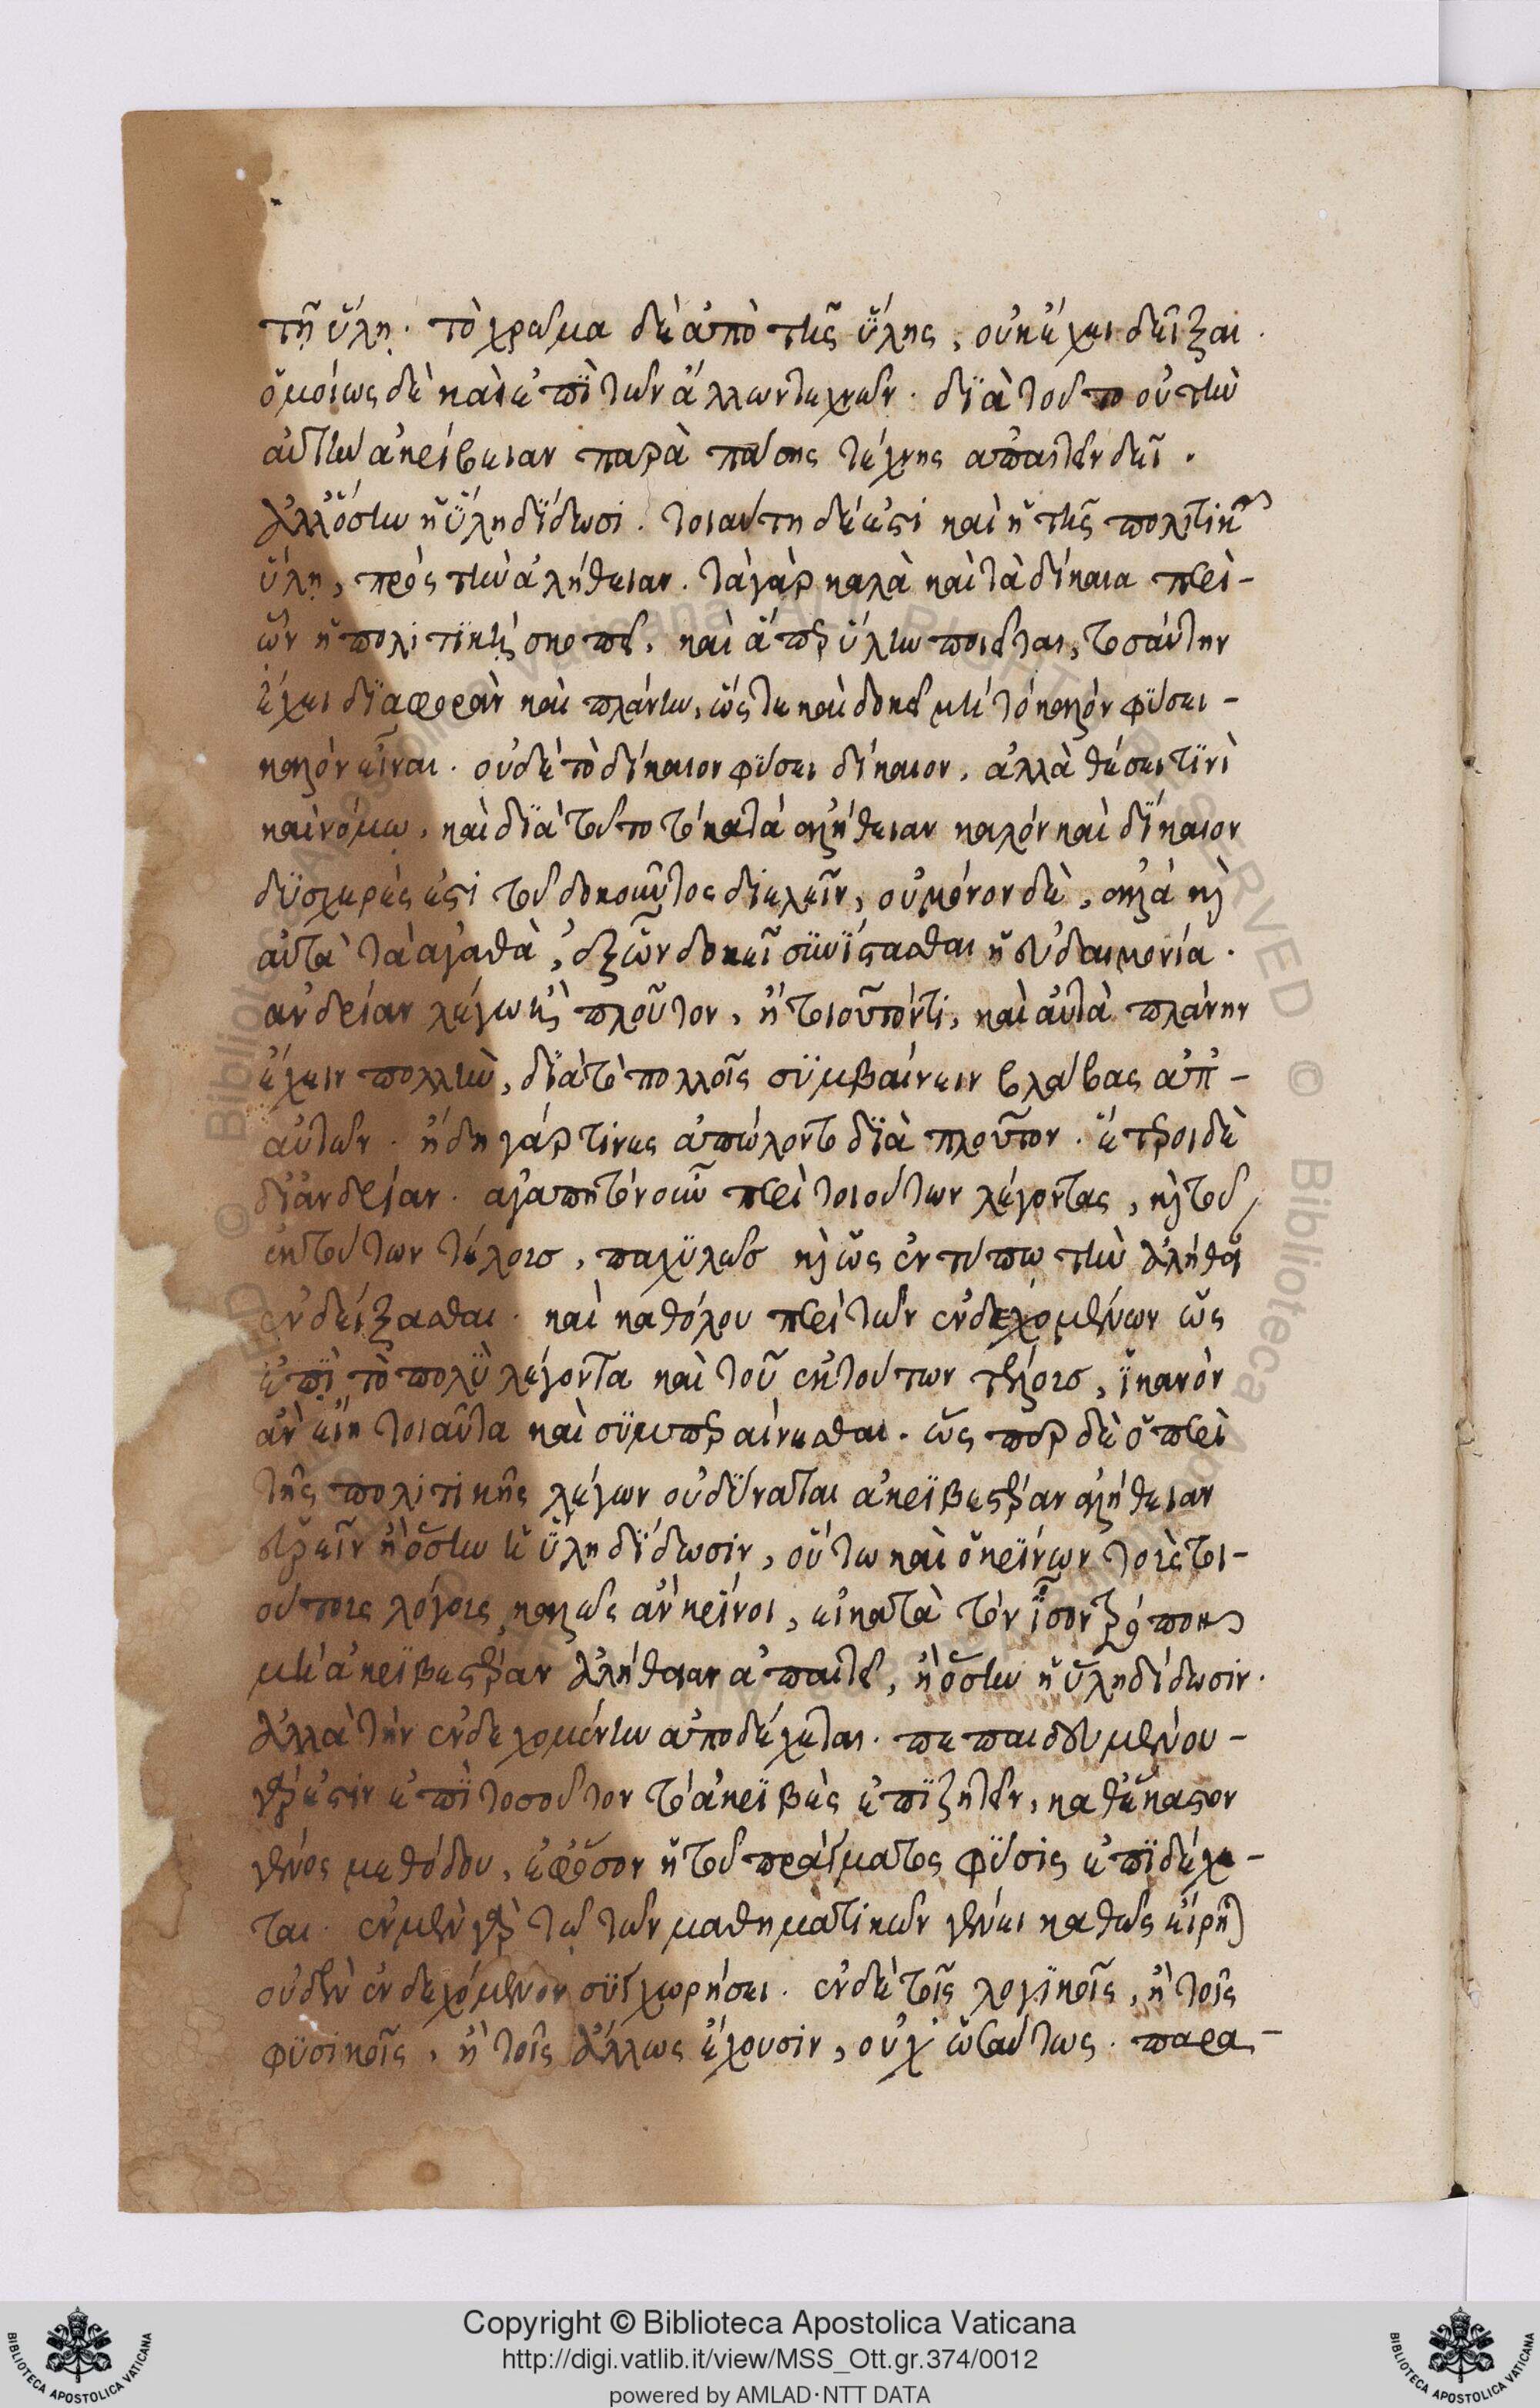 τῇ ὕλῃ. τὸ χρῶμα δὲ ἀπὸ τῆς ὕλης, οὐκ ἔχει δεῖξαι.
ὁμοίως δὲ καὶ ἐπὶ τῶν ἄλλων τεχνῶν. διὰ τοῦτο οὐ τὴν
αὐτὴν ἀκρίβειαν παρὰ πάσης τέχνης ἀπαιτεῖν δεῖ.
ἀλλ' ὅσην ἡ ὕλη δίδωσι. τοιαύτη δέ ἐστι καὶ ἡ τῆς πολιτικῆς
ὕλη, πρὸς τὴν ἀλήθειαν. τὰ γὰρ καλὰ καὶ τὰ δίκαια περὶ-
ὧν ἡ πολιτικὴ σκοπεῖ, καὶ ἅπερ ὕλην ποιεῖται, τοσαύτην
ἔχει διαφορὰν καὶ πλάνην, ὥστε καὶ δοκεῖ μὴ τὸ καλὸν φύσει-
καλὸν εἶναι. οὐδὲ τὸ δίκαιον φύσει δίκαιον, ἀλλὰ θέσει τινὶ
καὶ νόμῳ, καὶ διὰ τοῦτο τὸ κατὰ ἀλήθειαν καλὸν καὶ δίκαιον
δυσχερές ἐστι τοῦ δοκοῦντος διελεῖν, οὐ μόνον δὲ, ἀλλὰ καὶ
αὐτὰ τὰ ἀγαθὰ, ἐξ ὧν δοκεῖ συνίστασθαι ἡ εὐδαιμονία.
ἀνδρίαν λέγω καὶ πλοῦτον, ἤ τοιοῦτόν τι, καὶ αὐτὰ πλάνην
ἔχειν πολλὴν, διὰ τὸ πολλοῖς συμβαίνειν βλάβας ἀπ'-
αὐτῶν. ἤδη γάρ τινες ἀπώλοντο διὰ πλοῦτον. ἕτεροι δὲ
δι' ἀνδρίαν. ἀγαπητὸν οὖν περὶ τοιούτων λέγοντας, καὶ τοῦ
ἐκ τούτων τέλοισ, παχυλῶσ καὶ ὡς ἐν τύπῳ τὴν ἀλήθει
ἐνδείξασθαι. καὶ καθόλου περὶ τῶν ἐνδεχομένων ὡς
ἐπὶ τὸ πολὺ λέγοντα καὶ τοῦ ἐκ τούτων τέλοισ, ἱκανὸν
ἂν εἴη τοιαῦτα καὶ συμπεραίνεσθαι. ὥς περ δὲ ὁ περὶ
τῆς πολιτικῆς λέγων οὐ δύναται ἀκριβεστέραν ἀλήθειαν
εὑρεῖν ἢ ὅσην ἡ ὕλη δίδωσιν, οὕτω καὶ ὁ κρίνων τοῖς τοι-
ούτοις λόγοις καλῶς ἂν κρίνοι, εἰ κατὰ τὸν ἴσον τρόπον
μὴ ἀκριβεστέραν ἀλήθειαν ἀπαιτεῖ, ἢ ὅσην ἡ ὕλη δίδωσιν.
ἀλλὰ τὴν ἐνδεχομένην ἀποδέχεται. πεπαιδευμένου-
γάρ ἐστιν ἐπὶ τοσοῦτον τὸ ἀκριβὲς ἐπιζητεῖν, καθ' ἕκαστον
γένος μεθόδου, ἐφ' ὅσον ἡ τοῦ πράγματος φύσις ἐπιδέχε-
ται. ἐν μὲν γὰρ τῷ τῶν μαθηματικῶν γένει καθὼς εἴρηται
οὐδὲν ἐνδεχόμενον συγχωρήσει. ἐν δὲ τοῖς λογικοῖς, ἢ τοῖς
φυσικοῖς, ἢ τοῖς ἄλλως ἔχουσιν, οὐχ ὡσαύτως. παρα-
Copyright © Biblioteca Apostolica Vaticana
http://digi.vatlib.it/view/MSS_Ott.gr.374/0012
powered by AMLAD·NTT DATA